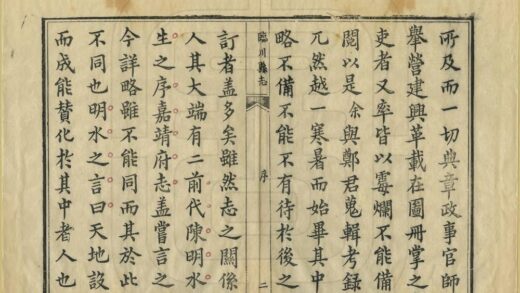 所及而一切典章政事官師
舉營建興革載在圖冊掌之
吏者又率皆以霉爛不能備
閱以是余與鄭君蒐輯考録
兀然越一寒暑而始畢其中
略不備不能不有待於後之
臨川縣志
序
二
訂者盖多矣雖然志之關係
人其大端有二前代陳明水
生之序嘉靖府志盖嘗言之
今詳略雖不能同而其於此
不同也明水之言曰天地設
而成能贊化於其中者人也